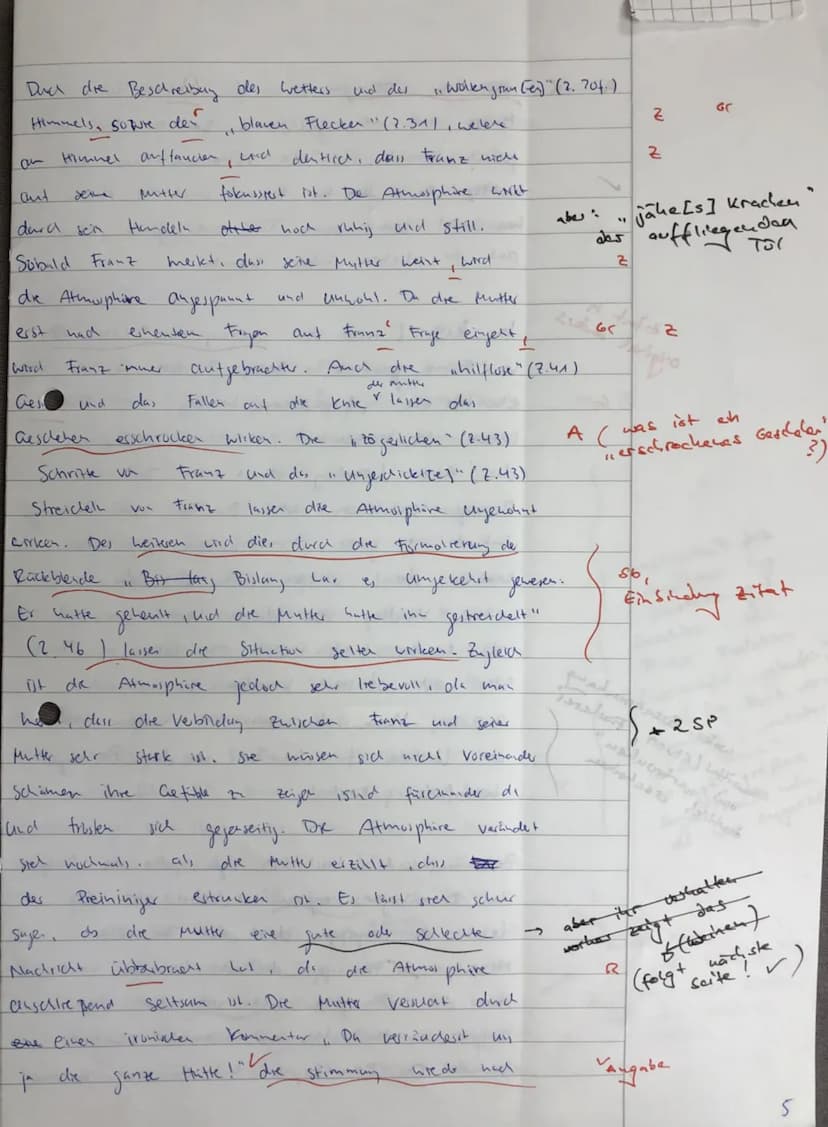 Durch die Beschreibung des Wetters und des „wolkengrau[en]" (Z. 70f.)
Himmels, sowie der „blauen Flecken" (Z.31), welche
Z Gr
am Himmel auftauchen, wird deutlich, dass Franz nicht
Z
auf seine Mutter fokussiert ist. Die Atmosphäre wirkt
durch sein Handeln noch ruhig und still.
aber: „jähe[s] Krachen"
des auffliegenden
Tor
Sobald Franz merkt, dass seine Mutter weint, wird
Z
die Atmosphäre angespannt und unwohl. Da die Mutter
erst nach erneutem Fragen auf Franz' Frage eingeht,
Gr Z
wird Franz immer aufgebrachter. Auch die „hilflose" (Z.41)
und das Fallen auf die Knie der Mutter lassen das
Geschehen erschrocken wirken. Die „zögerlichen" (Z.43)
A (was ist ein
„erschrockenes Geschehen"
?)
Schritte von Franz und das „ungeschickt[e]" (Z.43)
Streicheln von Franz lassen die Atmosphäre ungewohnt
wirken. Des weiteren wird dies durch die Formulierung der
Rückblende „Bislang war es umgekehrt gewesen.
Sb,
Einbindung Zitat
Er hatte geheult, und die Mutter hatte ihn gestreichelt"
(Z. 46) lassen die Situation selten wirken. Zugleich
ist die Atmosphäre jedoch sehr liebevoll, da man
dass die Verbindung zwischen Franz und seiner
+ 2SP
Mutter sehr stark ist. Sie müssen sich nicht voreinander
schämen ihre Gefühle zu zeigen, sind füreinander da
und trösten sich gegenseitig. Die Atmosphäre verändert
sich nochmals, als die Mutter erzählt, dass
der Preininger ertrunken ist. Es lässt sich schwer
sagen, ob die Mutter eine gute oder schlechte
→ aber ihr verhalten
vorher zeigt das
(weinen)
(folgt nächste
seite! ✓)
Nachricht überbracht hat, da die Atmosphäre
R
anschließend seltsam ist. Die Mutter versucht durch
einen ironischen Kommentar „Du veränderst mir
ja die ganze Hütte!" die Stimmung wieder nach
√Angabe
5